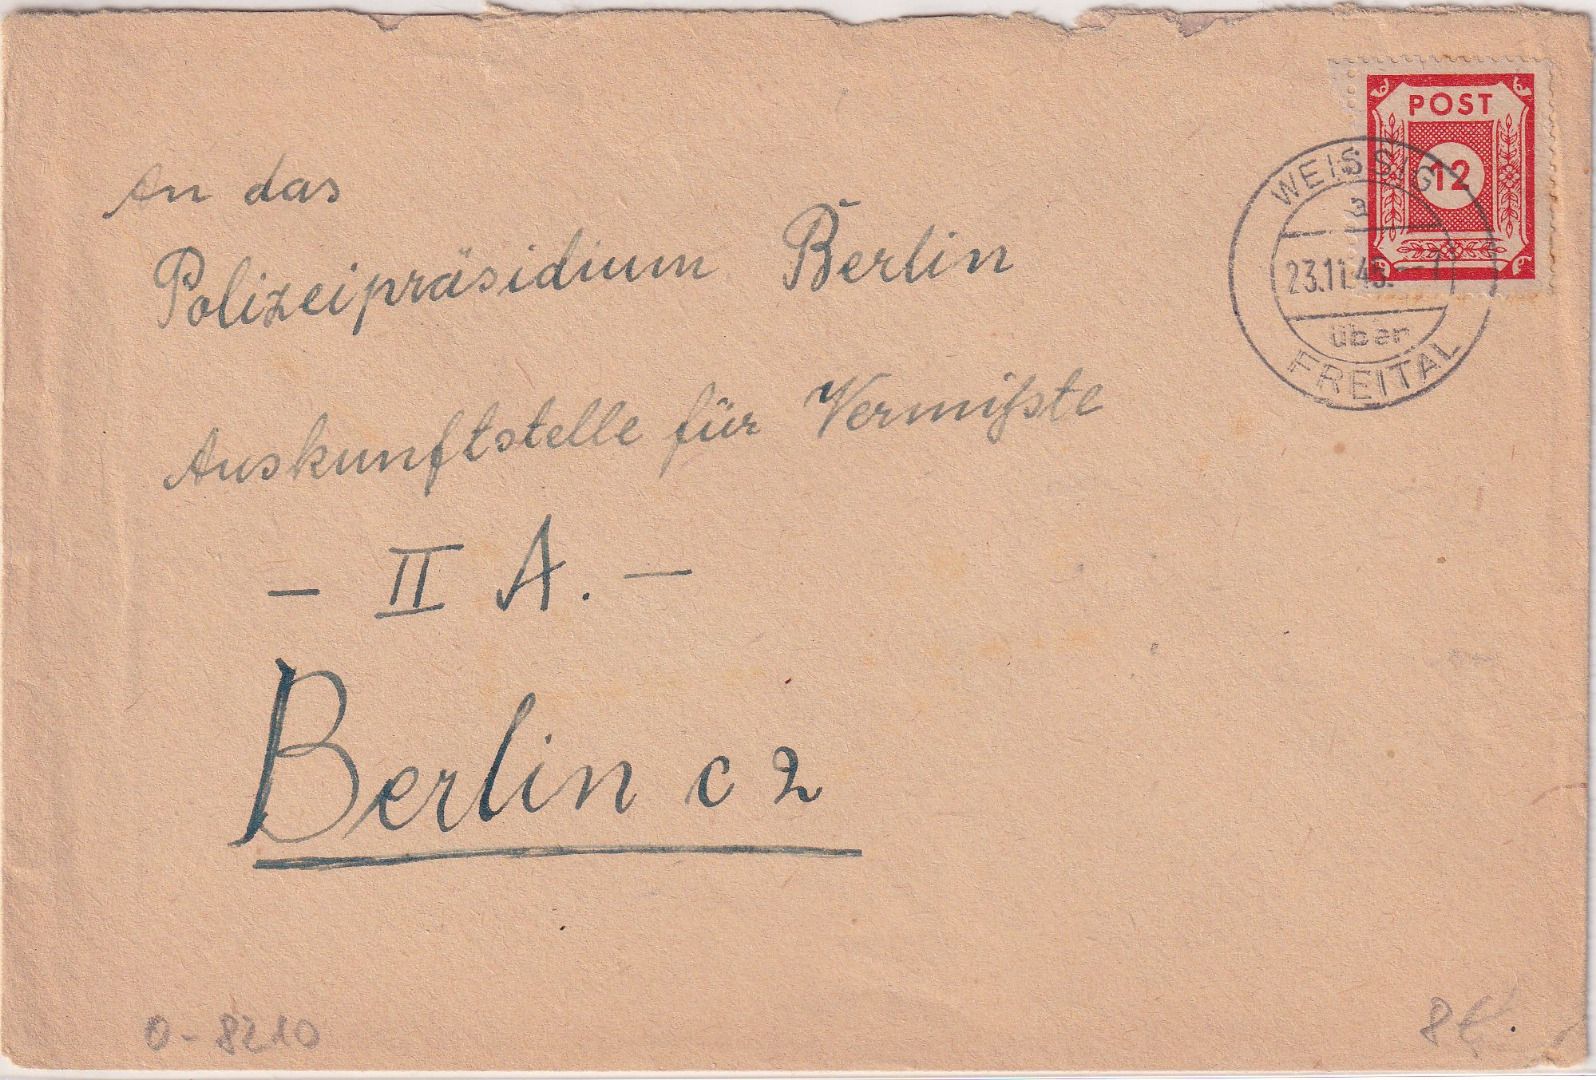 An das
Polizeipräsidium Berlin
Auskunftstelle für Vermißte
– II A. –
Berlin C 2
POST
12
WEISSIG
a
23.11.45.
über
FREITAL
0-8210